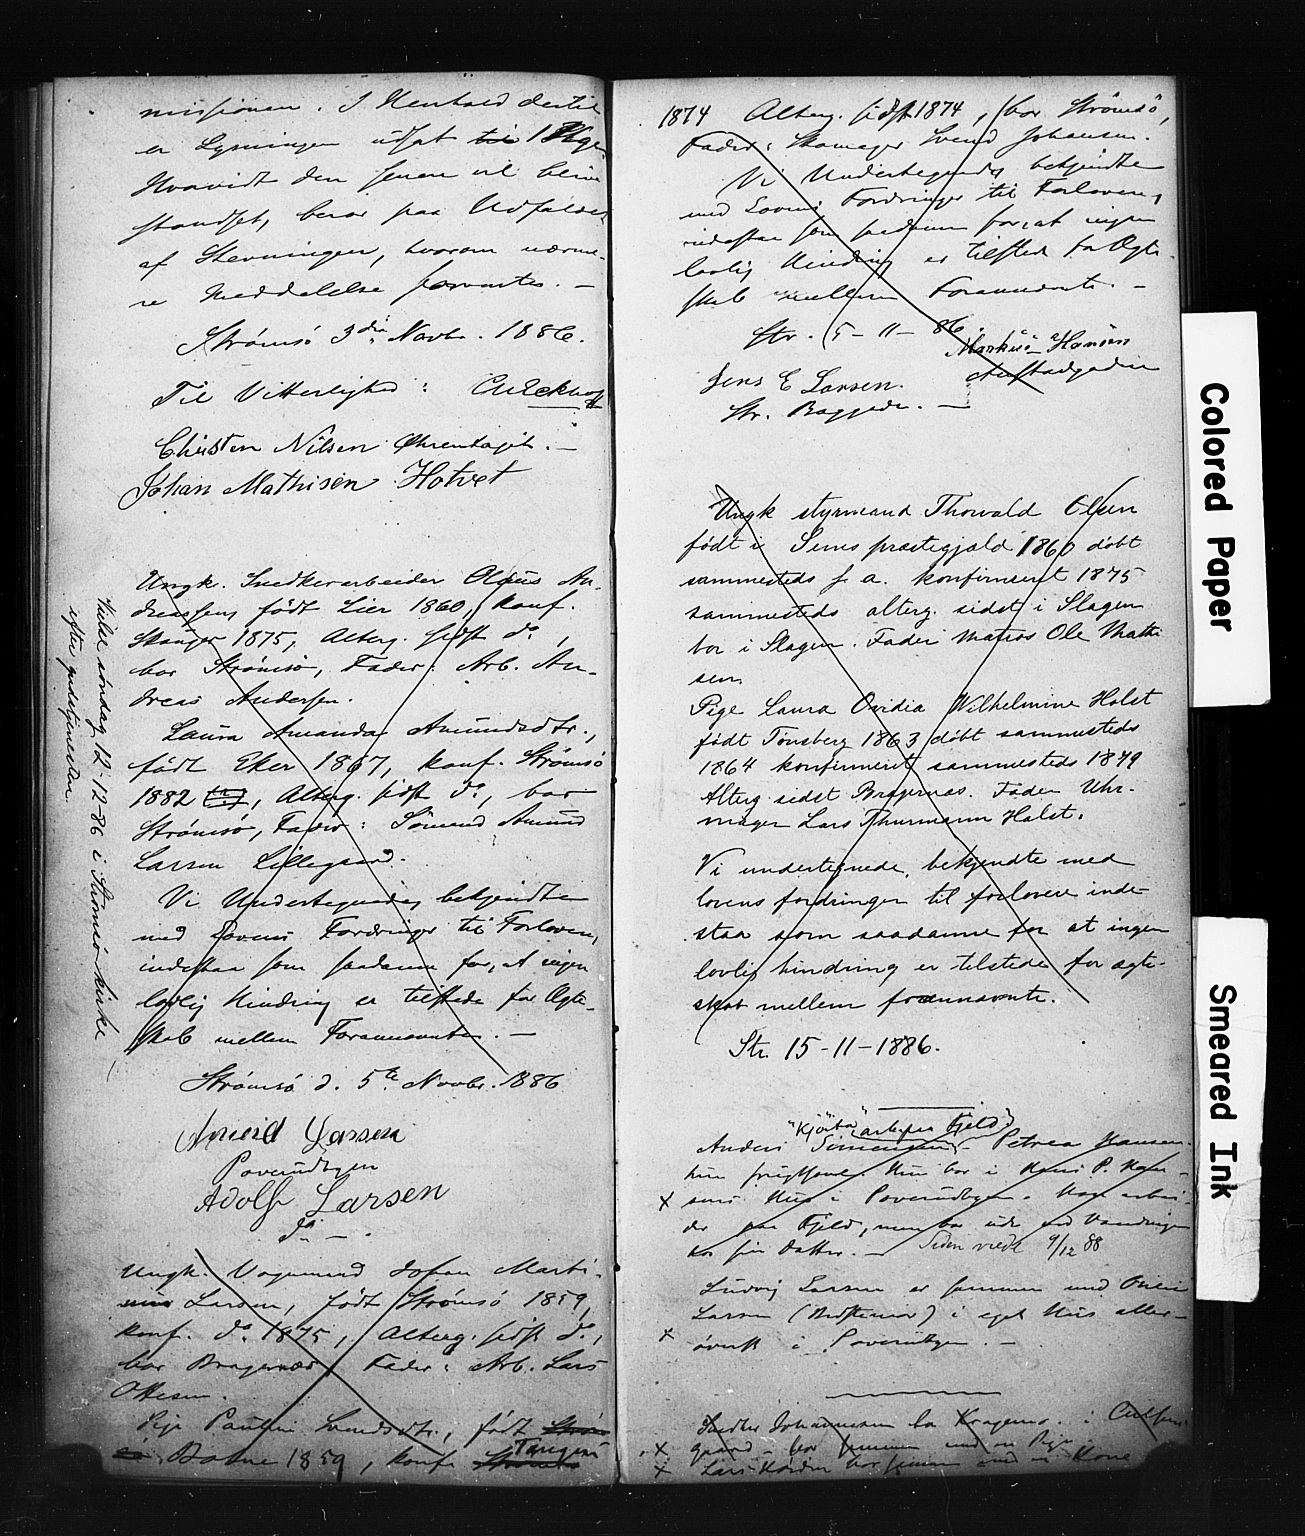 missionen. I Henhold dertil
er Lysningen udsat til 1
Hvorvidt den senere vil blive
standset, beror paa Udfaldet
af Stevningen, hvorom nærme-
re Meddelelse forventes. —
Strømsø 3die Novbr. 1886.
Til Vitterlighed:
Christen Nilsen Øhrentajet. —
Johan Mathisen Hotvet
Ungk. Snedkerarbeider Olaus An-
dreassen, født Lier 1860, konf.
Skauger 1875, Alterg. sidst do,
bor Strømsø, Fader: Arb. An-
dreas Andersen.
Laura Amanda Amundsdtr.,
født Eker 1867, konf. Strømsø
1882, Alterg. sidst do, bor
Strømsø, Fader: Sømand Amund
Larsen Lillegaard.
Vi Undertegnede, bekjendte
med Lovens Fordringer til Forlovere,
indestaa som saadanne for, at ingen
lovlig Hindring er tilstede for Ægte-
skab mellem Forannævnte. —
Strømsø d. 5te Novbr. 1886
Amund Larsen
Poverudbyen
Adolf Larsen
do —
Vielse søndag 12-12-86 i Strømsø kirke
efter gudstjenesten
Ungk. Vognmand Johan Marti-
nius Larsen, født Strømsø 1859,
konf. do 1875, Alterg. sidst do,
bor Bragernæs, Fader: Arb. Lars
Ottesen.
Pige Pauline Svendsdtr., født Strøm-
sø 1859, konf. Tangen Strømsø
1874 Alterg. sidst 1874, bor Strømsø,
Fader: Skomager Svend Johansen.
Vi Undertegnede, bekjendte
med Lovens Fordringer til Forlovere,
indestaa som saadanne for, at ingen
lovlig Hindring er tilstede for Ægte-
skab mellem Forannævnte. —
Str. 5-11-86.
Markus Hansen
Jens E Larsen.
Str. Baggade. —
Ungk styrmand Thorvald Olsen
født i Sems præstegjæld 1860 døbt
sammesteds s. a. konfirmeret 1875
sammesteds alterg. sidst i Slagen
bor i Slagen. Fader matros Ole Mathi
sen.
Pige Laura Ovidia Wilhelmine Holst
født Tønsberg 1863 døbt sammesteds
1864 konfirmeret sammesteds 1879
Alterg sidst Bragernæs. Fader Uhr-
mager Lars Thurmann Holst.
Vi undertegnede, bekjendte med
lovens fordringer til forlovere inde-
staa som saadanne for at ingen
lovlig hindring er tilstede for ægte-
skab mellem forannævnte.
Str. 15-11-1886.
Anders Simensen – Petrea Hansen.
Hun bor i Hans P. Han-
sens Hus i Poverudbyen. Han arbei-
der paa Fjeld, men bor ude ved Vandringen
hos sin Datter. — Siden viede 9/12 88
Ludvig Larsen er sammen med
Larsen i eget Hus aller-
øverst i Poverudbyen. —
Johannesen bor Kragerno. i
gaard – bor sammen med en Pige
Lars bor sammen med en Kone
Colored Paper
Smeared Ink